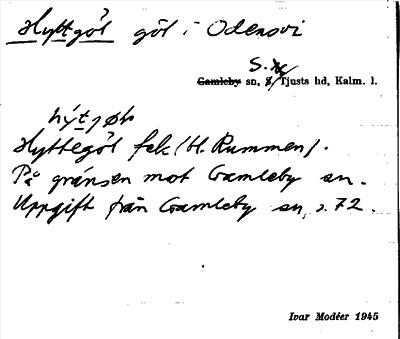 Hyttgöl göl i Odensvi
S.
Gamleby sn, Tjusts hd, Kalm. l.
Hyttegöl fek (H. Rummen).
På gränsen mot Gamleby sn.
Uppgift från Gamleby sn, s. 72.
Ivar Modéer 1945